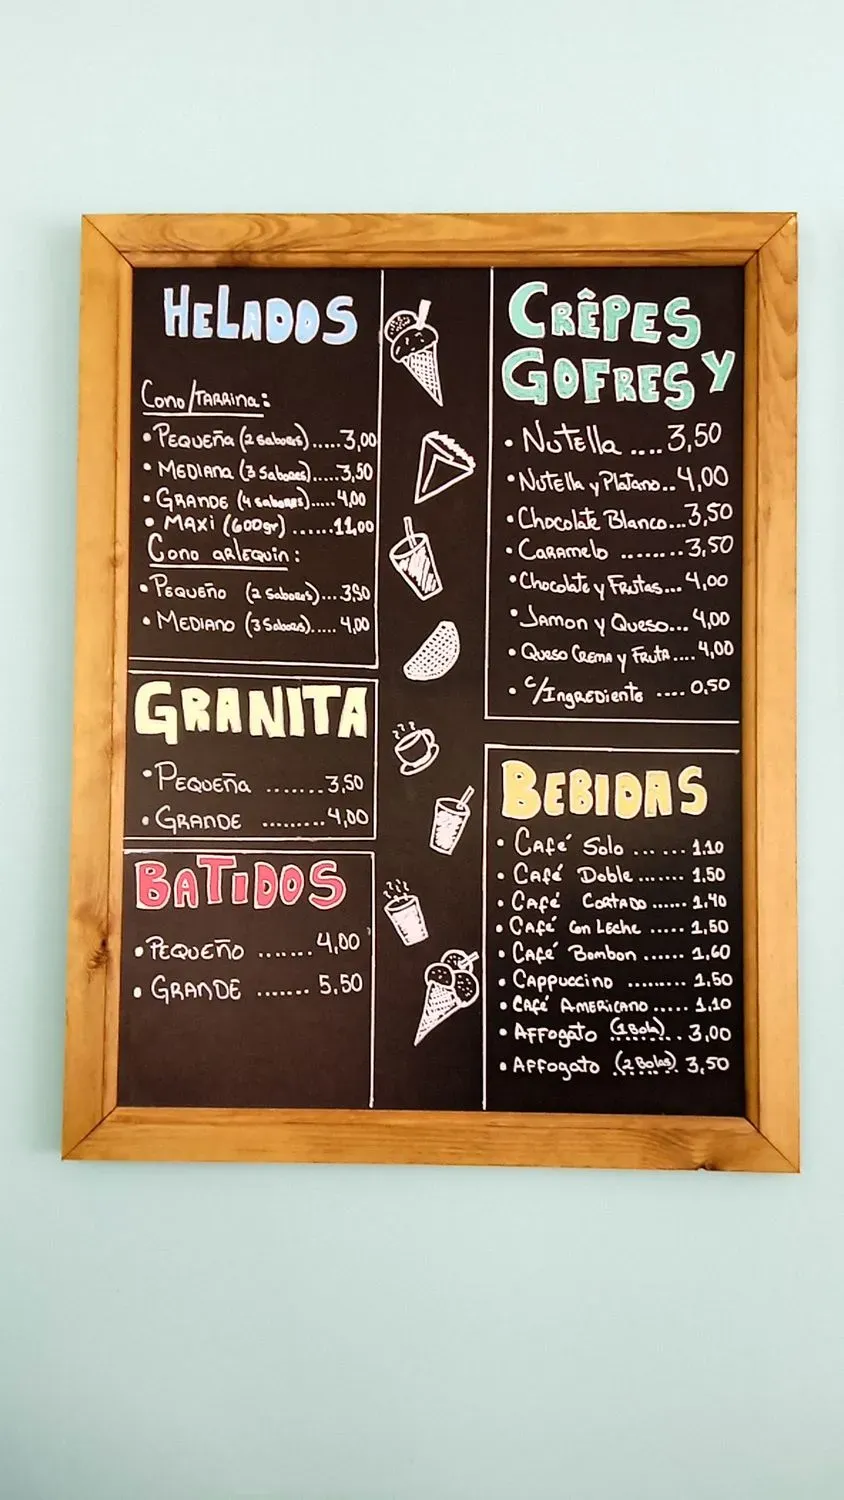 HELADOS
Cono/TARRINA:
• PEQUEÑA (2 sabores).....3,00
• MEDIANA (3 Sabores).....3,50
• GRANDE (4 sabores).....4,00
• MAXI (600gr) ......11,00
Cono arlequin:
• PEQUEÑO (2 sabores)...3,50
• MEDIANO (3 Sabores).....4,00
GRANITA
• PEQUEÑA .......3,50
• GRANDE .........4,00
BATIDOS
• PEQUEÑO .......4,00
• GRANDE .......5,50
CRÊPES Y
GOFRES
• Nutella ....3,50
• Nutella y Platano..4,00
• Chocolate Blanco...3,50
• Caramelo ........3,50
• Chocolate y Frutas...4,00
• Jamon y Queso...4,00
• Queso Crema y Fruta....4,00
• c/Ingrediente ....0,50
BEBIDAS
• Café Solo ......1,10
• Café Doble.......1,50
• Café Cortado ......1,40
• Café con Leche .....1,50
• Café Bombon ......1,60
• Cappuccino .........1,50
• Café Americano .....1,10
• Affogato (1 Bola)..3,00
• Affogato (2 Bolas) 3,50